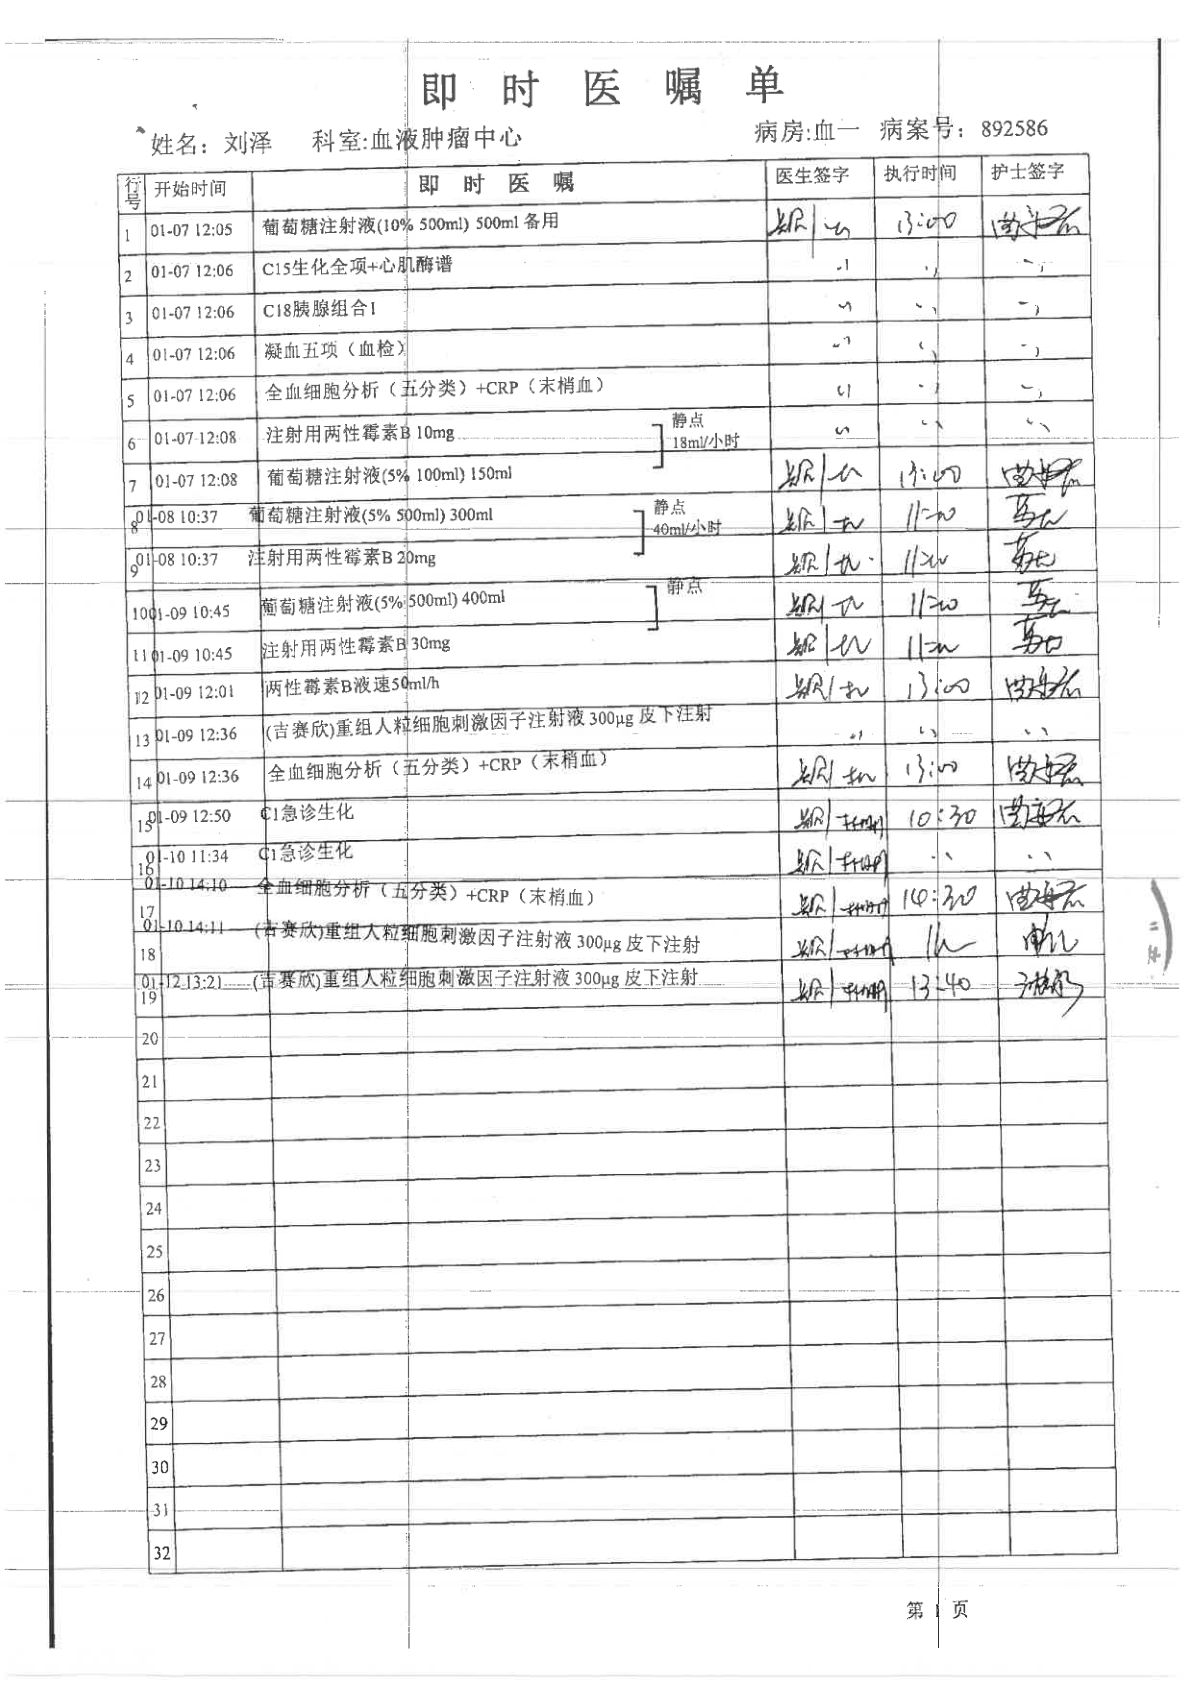 即 时 医 嘱 单
姓名：刘泽 科室:血液肿瘤中心 病房:血一 病案号：892586
行号 开始时间 即 时 医 嘱 医生签字 执行时间 护士签字
1 01-07 12:05 葡萄糖注射液(10% 500ml) 500ml 备用 13:00
2 01-07 12:06 C15生化全项+心肌酶谱
3 01-07 12:06 C18胰腺组合1
4 01-07 12:06 凝血五项（血检）
5 01-07 12:06 全血细胞分析（五分类）+CRP（末梢血）
6 01-07 12:08 注射用两性霉素B 10mg 静点 18ml/小时
7 01-07 12:08 葡萄糖注射液(5% 100ml) 150ml 13:00
8 01-08 10:37 葡萄糖注射液(5% 500ml) 300ml 静点 40ml/小时 11:20
9 01-08 10:37 注射用两性霉素B 20mg 11:20
10 01-09 10:45 葡萄糖注射液(5% 500ml) 400ml 静点 11:20
11 01-09 10:45 注射用两性霉素B 30mg 11:20
12 01-09 12:01 两性霉素B液速50ml/h 13:00
13 01-09 12:36 (吉赛欣)重组人粒细胞刺激因子注射液 300μg 皮下注射
14 01-09 12:36 全血细胞分析（五分类）+CRP（末梢血） 13:00
15 01-09 12:50 C1急诊生化 10:30
16 01-10 11:34 C1急诊生化
17 01-10 14:10 全血细胞分析（五分类）+CRP（末梢血） 14:30
18 01-10 14:11 (吉赛欣)重组人粒细胞刺激因子注射液 300μg 皮下注射
19 01-12 13:21 (吉赛欣)重组人粒细胞刺激因子注射液 300μg 皮下注射 13:40
20
21
22
23
24
25
26
27
28
29
30
31
32
第 1 页